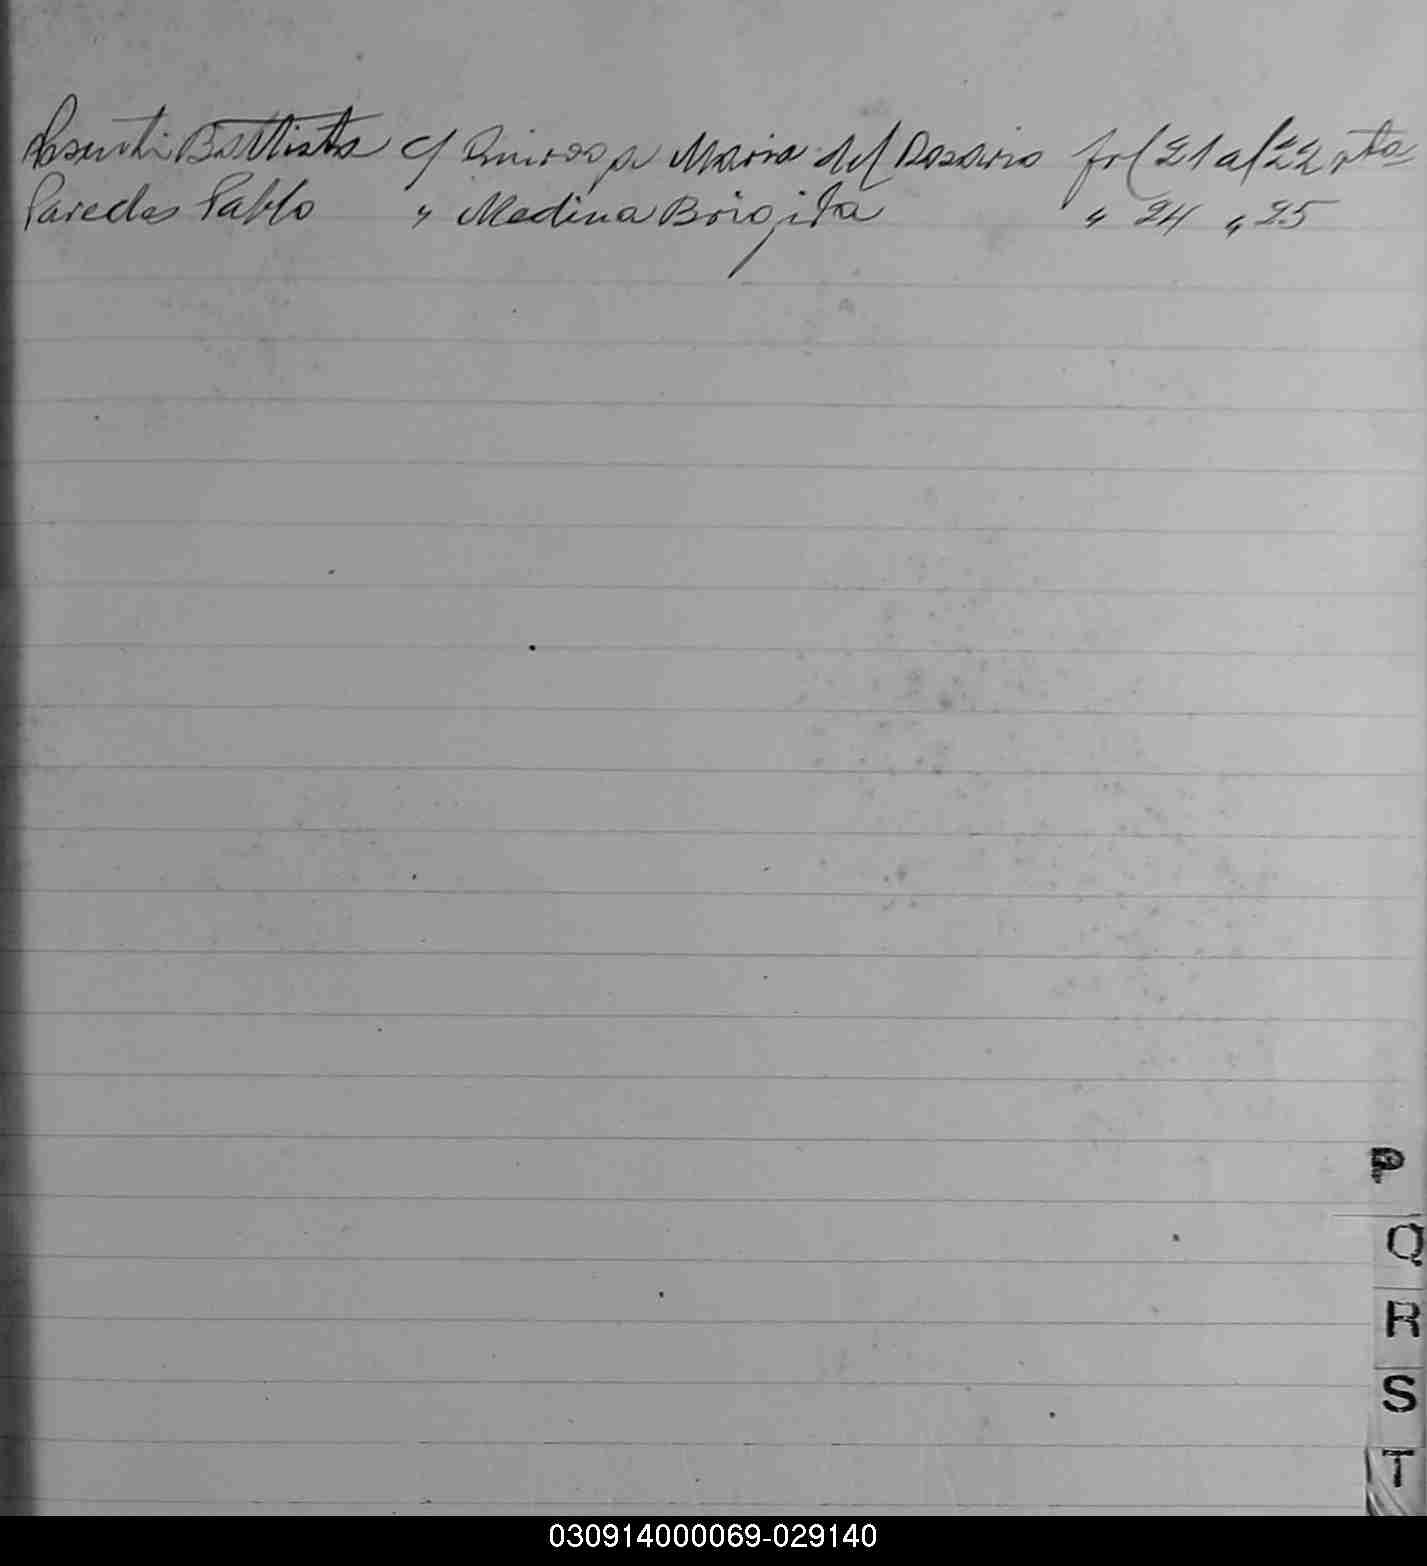 Battista c/ Quiroga Maria del Rosario fol 21 al 22 vta
Paredes Pablo " Medina Brigita " 24 " 25
P
Q
R
S
T
030914000069-029140